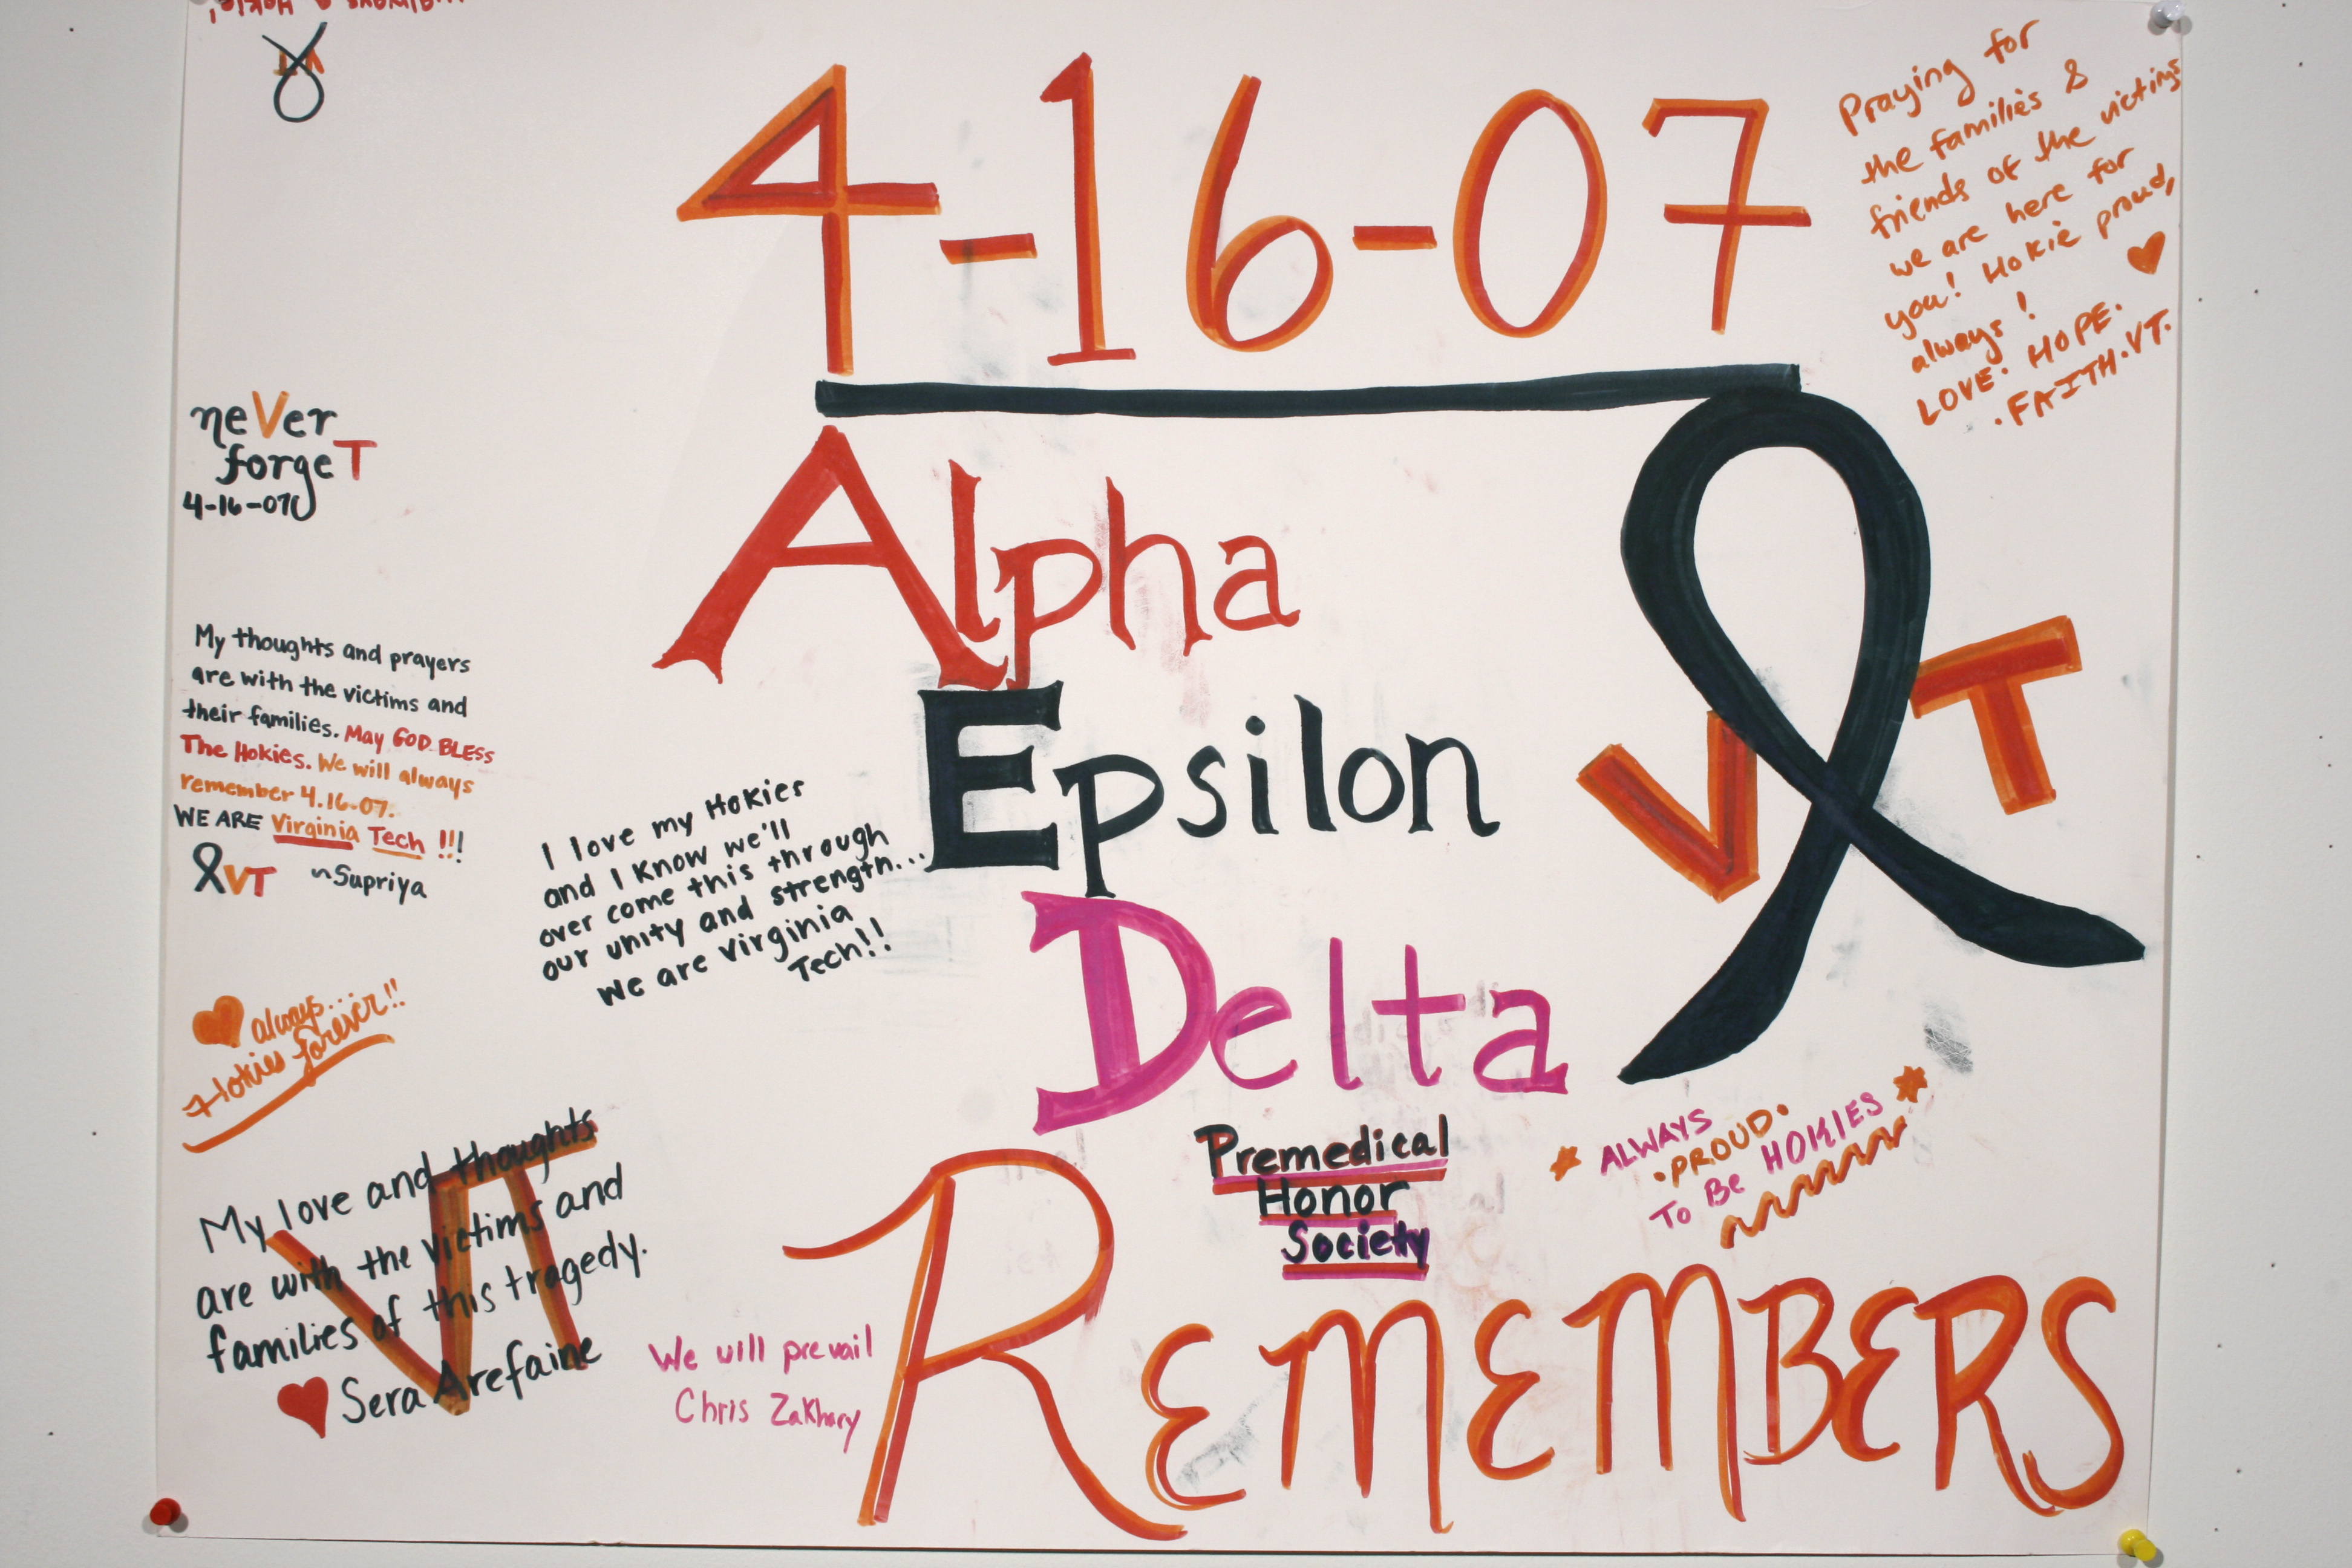 4-16-07
Alpha
Epsilon
Delta
Premedical
Honor
Society
REMEMBERS
VT
Praying for
the families &
friends of the victims
we are here for
you! Hokie proud,
always!
LOVE. HOPE.
.FAITH.VT.
VT
neVer
forgeT
4-16-07
My thoughts and prayers
are with the victims and
their families. May GOD BLESS
The Hokies. We will always
remember 4.16-07.
WE ARE Virginia Tech !!!
VT ~Supriya
I love my Hokies
and I know we'll
over come this through
our unity and strength...
we are Virginia
Tech!!
always...
Hokies forever!!
VT
My love and thoughts
are with the victims and
families of this tragedy.
Sera Arefaine
We will prevail
Chris Zakhary
ALWAYS
·PROUD·
To Be HOKIES